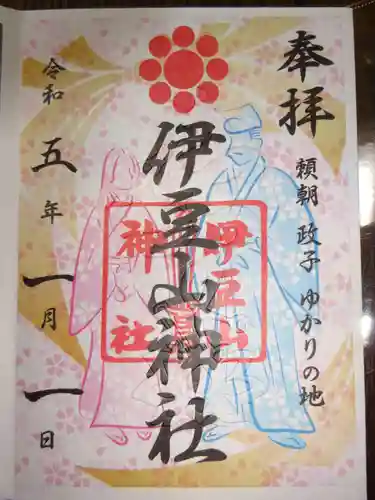 奉拝
頼朝 政子 ゆかりの地
伊豆山神社
伊豆山神社
令和五年一月一日